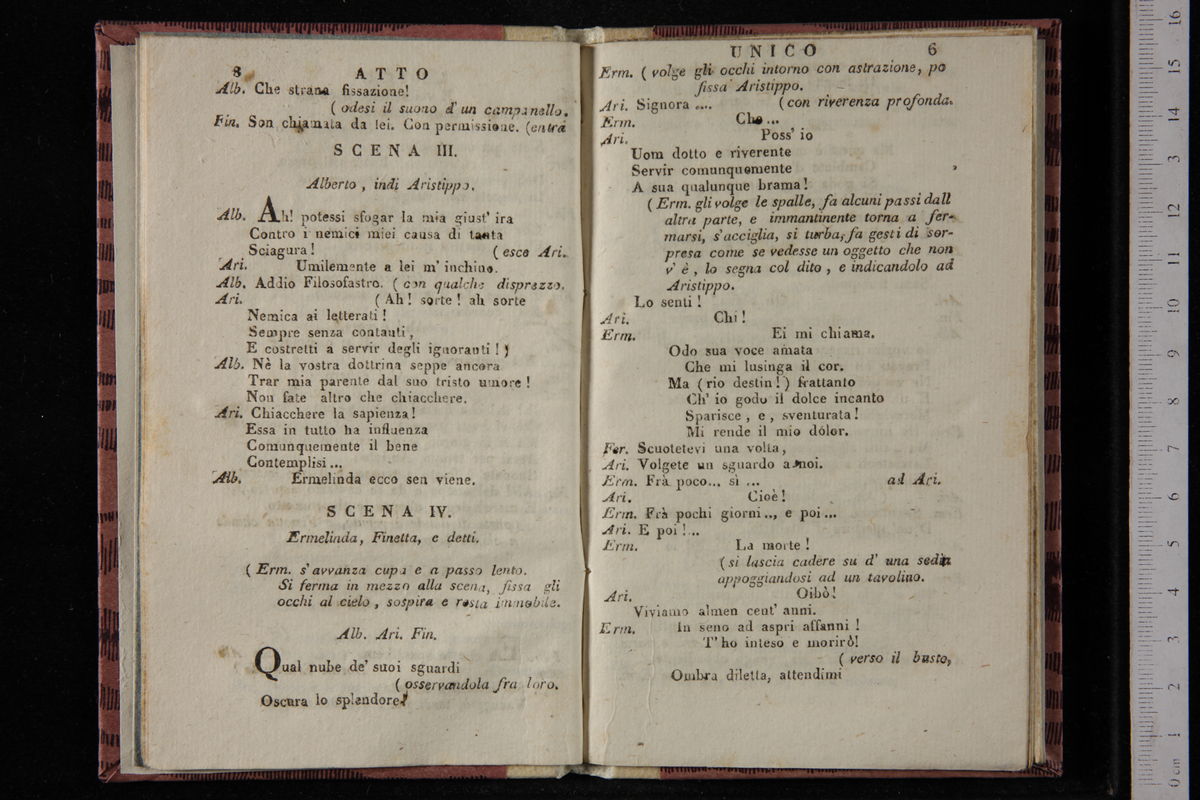 8 ATTO
Alb. Che strana fissazione!
( odesi il suono d' un campanello.
Fin. Son chiamata da lei. Con permissione. (entra
SCENA III.
Alberto, indi Aristippo.
Alb. Ah! potessi sfogar la mia giust' ira
Contro i nemici miei causa di tanta
Sciagura! ( esce Ari.
Ari. Umilemente a lei m' inchino.
Alb. Addio Filosofastro. ( con qualche disprezzo.
Ari. ( Ah! sorte! ah sorte
Nemica ai letterati!
Sempre senza contanti,
E costretti a servir degli ignoranti! )
Alb. Nè la vostra dottrina seppe ancora
Trar mia parente dal suo tristo umore!
Non fate altro che chiacchere.
Ari. Chiacchere la sapienza!
Essa in tutto ha influenza
Comunquemente il bene
Contemplisi...
Alb. Ermelinda ecco sen viene.
SCENA IV.
Ermelinda, Finetta, e detti.
( Erm. s' avvanza cupa e a passo lento.
Si ferma in mezzo alla scena, fissa gli
occhi al cielo, sospira e resta immobile.
Alb. Ari. Fin.
Qual nube de' suoi sguardi
( osservandola fra loro.
Oscura lo splendore!
UNICO 6
Erm. ( volge gli occhi intorno con astrazione, po
fissa Aristippo.
Ari. Signora .... ( con riverenza profonda.
Erm. Che ...
Ari. Poss' io
Uom dotto e riverente
Servir comunquemente
A sua qualunque brama!
( Erm. gli volge le spalle, fa alcuni passi dall
altra parte, e immantinente torna a fer-
marsi, s'acciglia, si turba, fa gesti di sor-
presa come se vedesse un oggetto che non
v' è, lo segna col dito, e indicandolo ad
Aristippo.
Lo senti!
Ari. Chi!
Erm. Ei mi chiama.
Odo sua voce amata
Che mi lusinga il cor.
Ma ( rio destin! ) frattanto
Ch' io godo il dolce incanto
Sparisce, e, sventurata!
Mi rende il mio dolor.
Fer. Scuotetevi una volta,
Ari. Volgete un sguardo a noi.
Erm. Frà poco... sì ... ad Ari.
Ari. Cioè!
Erm. Frà pochi giorni.., e poi...
Ari. E poi!...
Erm. La morte!
( si lascia cadere su d' una sedia
appoggiandosi ad un tavolino.
Ari. Oibò!
Viviamo almen cent' anni.
Erm. In seno ad aspri affanni!
T' ho inteso e morirò!
( verso il busto,
Ombra diletta, attendimi
16
15
14
13
12
11
10
9
8
7
6
5
4
3
2
1
0 cm